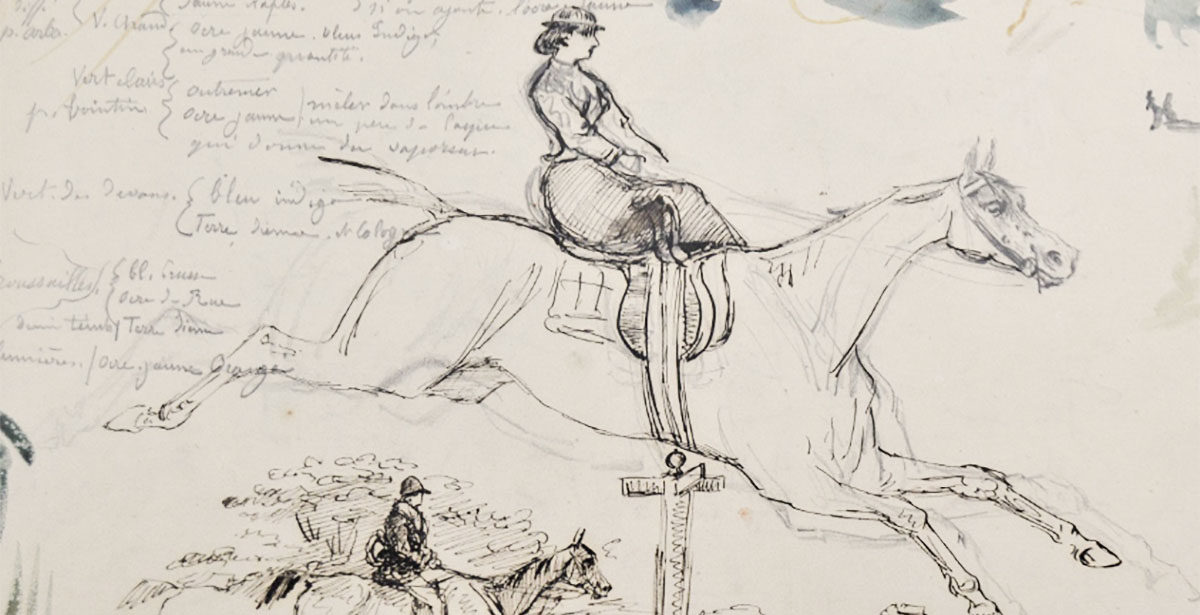 jaune Naples. si on ajoute l'ocre jaune
p. arbr. V. Grand { ocre jaune. bleu Indigo,
en grande quantité.
Vert clair { outremer
pr. lointain { ocre jaune / mêler dans l'ombre
un peu de
qui donne du vaporeux.
Vert des devans. { bleu indigo
Terre Sienne.
{ bl. Prusse
ocre de Rue
demi teinte / Terre Sienne
lumières. / ocre jaune Orange